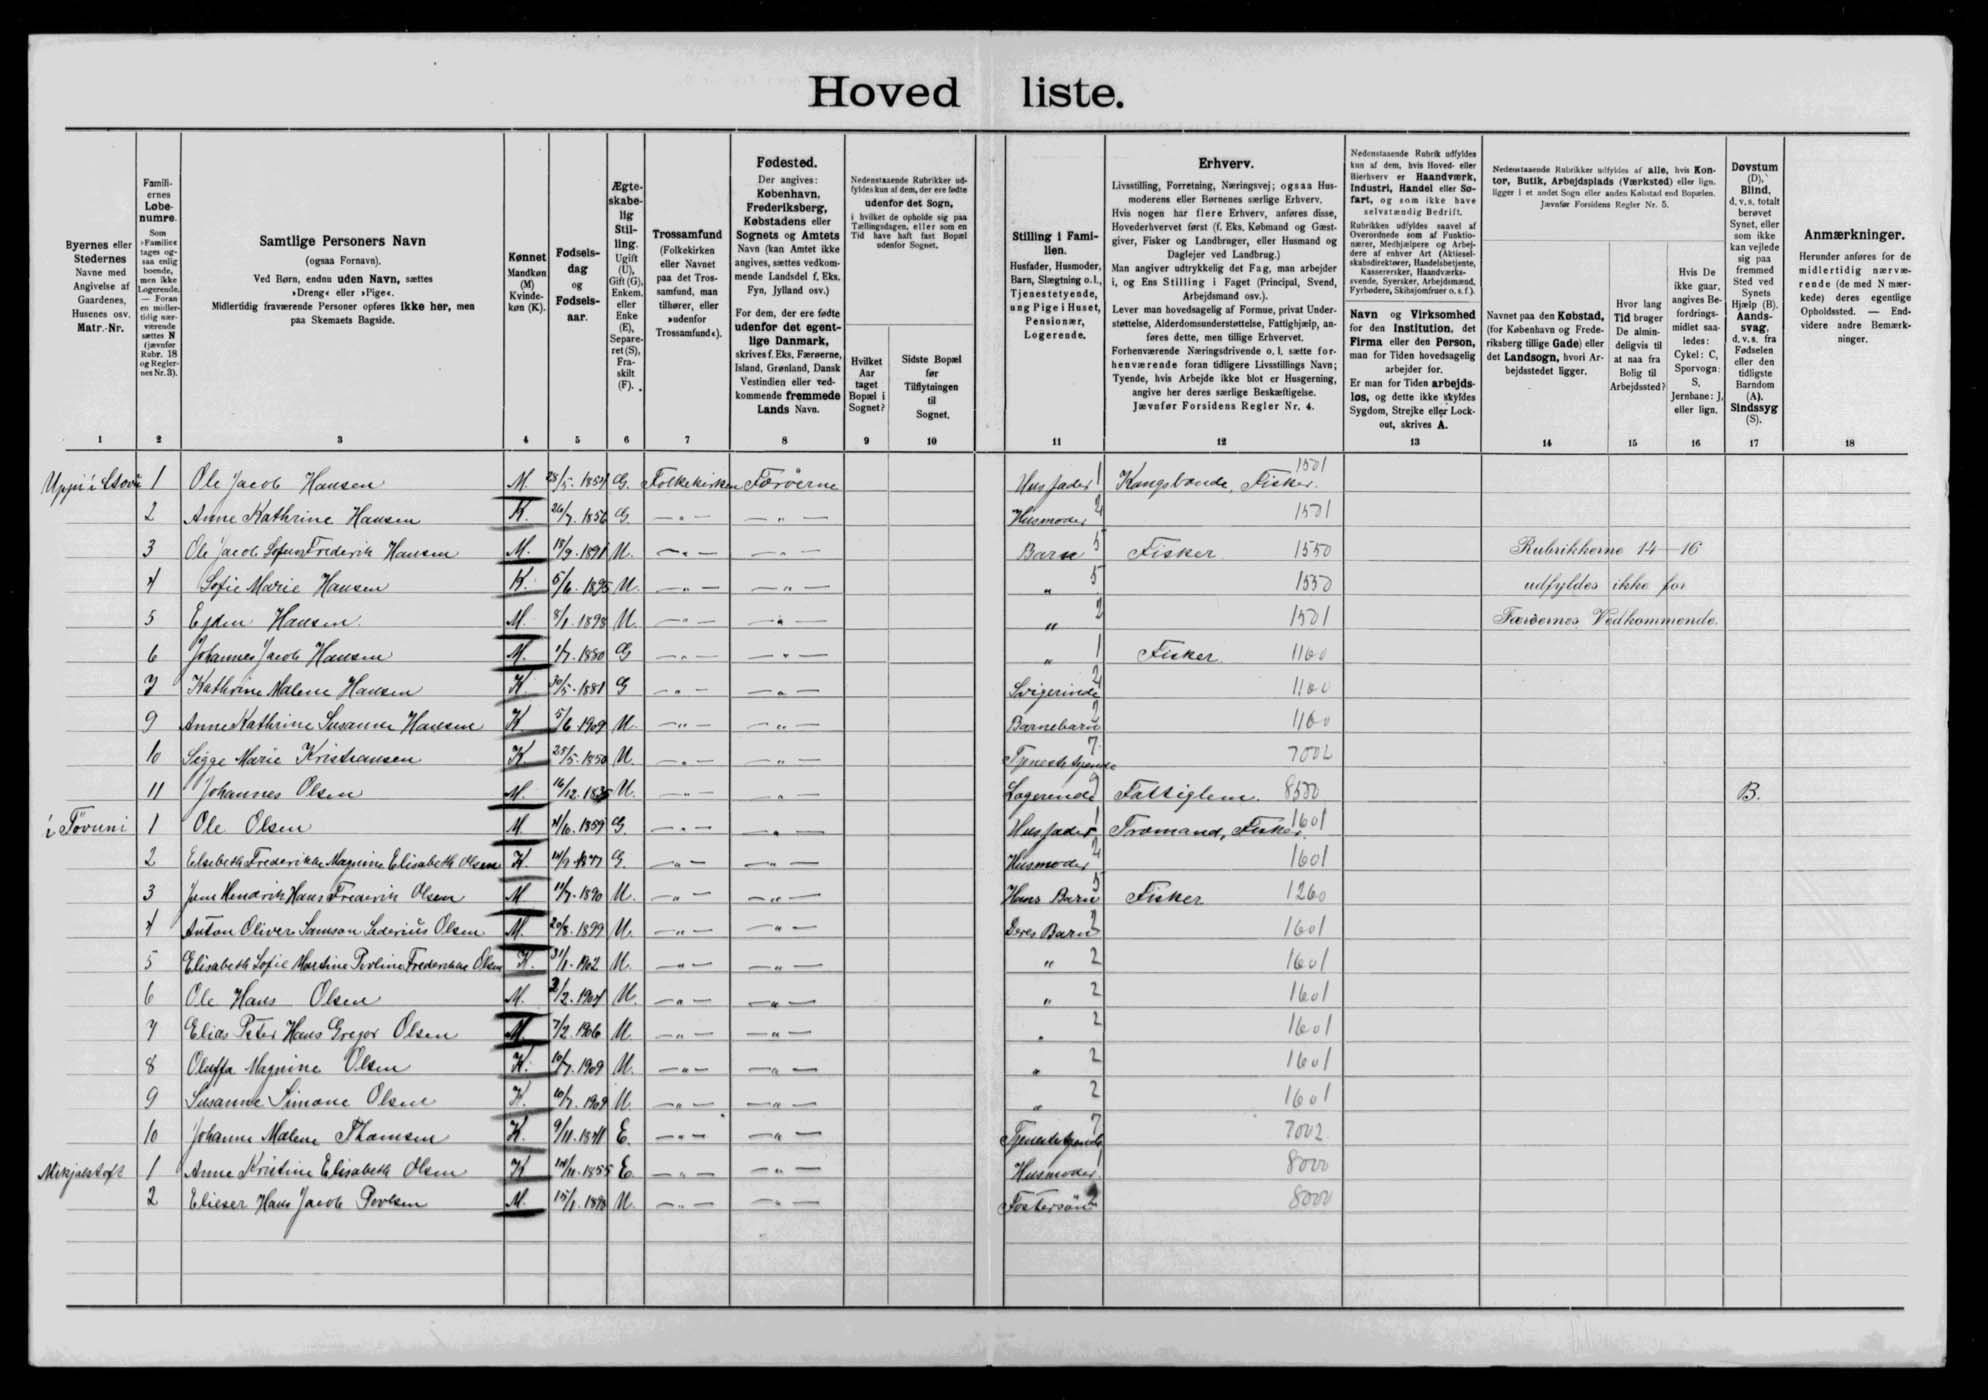 Hovedliste.
Byernes eller Stedernes Navne med Angivelse af Gaardenes, Husenes osv. Matr.-Nr.
Famili-ernes Løbe-numre. Som »Familie« tages og-saa enlig boende, men ikke Logerende. — Foran en midler-tidig nær-værende sættes N (jævnfør Rubr. 18 og Regler-nes Nr. 3).
Samtlige Personers Navn (ogsaa Fornavn). Ved Børn, endnu uden Navn, sættes »Dreng« eller »Pige«. Midlertidig fraværende Personer opføres ikke her, men paa Skemaets Bagside.
Kønnet Mandkøn (M) Kvinde-køn (K).
Fødsels-dag og Fødsels-aar.
Ægte-skabe-lig Stil-ling. Ugift (U), Gift (G), Enkem. eller Enke (E), Separe-ret (S), Fra-skilt (F).
Trossamfund (Folkekirken eller Navnet paa det Tros-samfund, man tilhører, eller »udenfor Trossamfund«).
Fødested. Der angives: København, Frederiksberg, Købstadens eller Sognets og Amtets Navn (kan Amtet ikke angives, sættes vedkom-mende Landsdel f. Eks. Fyn, Jylland osv.) For dem, der ere fødte udenfor det egent-lige Danmark, skrives f. Eks. Færøerne, Island, Grønland, Dansk Vestindien eller ved-kommende fremmede Lands Navn.
Nedenstaaende Rubrikker ud-fyldes kun af dem, der ere fødte udenfor det Sogn, i hvilket de opholde sig paa Tællingsdagen, eller som en Tid have haft fast Bopæl udenfor Sognet.
Hvilket Aar taget Bopæl i Sognet?
Sidste Bopæl før Tilflytningen til Sognet.
Stilling i Fami-lien. Husfader, Husmoder, Barn, Slægtning o. l., Tjenestetyende, ung Pige i Huset, Pensionær, Logerende.
Erhverv. Livsstilling, Forretning, Næringsvej; ogsaa Hus-moderens eller Børnenes særlige Erhverv. Hvis nogen har flere Erhverv, anføres disse, Hovederhvervet først (f. Eks. Købmand og Gæst-giver, Fisker og Landbruger, eller Husmand og Daglejer ved Landbrug.) Man angiver udtrykkelig det Fag, man arbejder i, og Ens Stilling i Faget (Principal, Svend, Arbejdsmand osv.). Lever man hovedsagelig af Formue, privat Under-støttelse, Alderdomsunderstøttelse, Fattighjælp, an-føres dette, men tillige Erhvervet. Forhenværende Næringsdrivende o. l. sætte for-henværende foran tidligere Livsstillings Navn; Tyende, hvis Arbejde ikke blot er Husgerning, angive her deres særlige Beskæftigelse. Jævnfør Forsidens Regler Nr. 4.
Nedenstaaende Rubrik udfyldes kun af dem, hvis Hoved- eller Bierhverv er Haandværk, Industri, Handel eller Sø-fart, og som ikke have selvstændig Bedrift. Rubrikken udfyldes saavel af Overordnede som af Funktio-nærer, Medhjælpere og Arbej-dere af enhver Art (Aktiesel-skabsdirektører, Handelsbetjente, Kasserersker, Haandværks-svende, Syersker, Arbejdsmænd, Fyrbødere, Skibsjomfruer o. s. f.).
Navn og Virksomhed for den Institution, det Firma eller den Person, man for Tiden hovedsagelig arbejder for. Er man for Tiden arbejds-løs, og dette ikke skyldes Sygdom, Strejke eller Lock-out, skrives A.
Nedenstaaende Rubrikker udfyldes af alle, hvis Kon-tor, Butik, Arbejdsplads (Værksted) eller lign. ligger i et andet Sogn eller anden Købstad end Bopælen. Jævnfør Forsidens Regler Nr. 5.
Navnet paa den Købstad, (for København og Frede-riksberg tillige Gade) eller det Landsogn, hvori Ar-bejdsstedet ligger.
Hvor lang Tid bruger De almin-deligvis til at naa fra Bolig til Arbejdssted?
Hvis De ikke gaar, angives Be-fordrings-midlet saa-ledes: Cykel: C, Sporvogn: S, Jernbane: J, eller lign.
Døvstum (D), Blind, d. v. s. totalt berøvet Synet, eller som ikke kan vejlede sig paa fremmed Sted ved Synets Hjælp (B). Aands-svag, d. v. s. fra Fødselen eller den tidligste Barndom (A). Sindssyg (S).
Anmærkninger. Herunder anføres for de midlertidig nærvæ-rende (de med N mær-kede) deres egentlige Opholdssted. — End-videre andre Bemærk-ninger.
1 2 3 4 5 6 7 8 9 10 11 12 13 14 15 16 17 18
1 Ole Jacob Hansen M. 28/5. 1854 G. Folkekirken Færøerne Husfader 1 Kongsbonde, Fisker. 1501
2 Anne Kathrine Hansen K. 26/7. 1856 G — " — — " — Husmoder 2 1501
3 Ole Jacob Sofus Frederik Hansen M. 18/9. 1891 U. — " — — " — Barn 5 Fisker 1550 Rubrikkerne 14—16
4 Sofie Marie Hansen K. 5/6. 1895 U. — " — — " — " 5 1550 udfyldes ikke for
5 Ejden Hansen. M. 8/1. 1898 U. — " — — " — " 2 1501 Færøernes Vedkommende.
6 Johannes Jacob Hansen M. 1/7. 1880 G — " — — " — " 1 Fisker. 1160
7 Kathrine Malene Hansen K. 30/5. 1881 G — " — — " — Svigerinde 2 1160
9 Anne Kathrine Susanne Hansen K 5/6. 1909 U. — " — — " — Barnebarn 2 1160
10 Sigge Marie Kristiansen K 25/5. 1850 U. — " — — " — Tjenestetyende 7 7002
11 Johannes Olsen M. 16/12. 1835 U. — " — — " — Logerende 9 Fattiglem. 8500 B.
i Tøvuni 1 Ole Olsen M. 4/6. 1859 G. — " — — " — Husfader 1 Tromand, Fisker. 1601
2 Elsebeth Frederikke Magnine Elisabeth Olsen K. G. — " — — " — Husmoder 2 1601
3 Jens Hendrik Hans Frederik Olsen M 11/7. 1890 U. — " — — " — Hans Barn 5 Fisker 1260
4 Anton Oliver Samson Olsen M. 20/8. 1899 U. — " — — " — Deres Barn 2 1601
5 Elisabeth Sofie Martine Frederikke Olsen K. 31/1. 1902 U. — " — — " — " 2 1601
6 Ole Hans Olsen M. 2/2. 1904 U. — " — — " — " 2 1601
7 Elias Peter Hans Gregor Olsen M. 7/2. 1906 U. — " — — " — " 2 1601
8 Oluffa Magnine Olsen K. 10/7. 1909 U. — " — — " — " 2 1601
9 Susanne Simone Olsen K. 10/7. 1909 U. — " — — " — " 2 1601
10 Johanne Malene Thomsen K. 9/11. 1841 E. — " — — " — Tjenestetyende 7 7002.
1 Anne Kristine Elisabeth Olsen K 14/11. 1855 E. — " — — " — Husmoder. 1 8000
2 Elieser Hans Jacob Povlsen M. 15/1. 1898 U. — " — — " — Fostersøn 2 8000